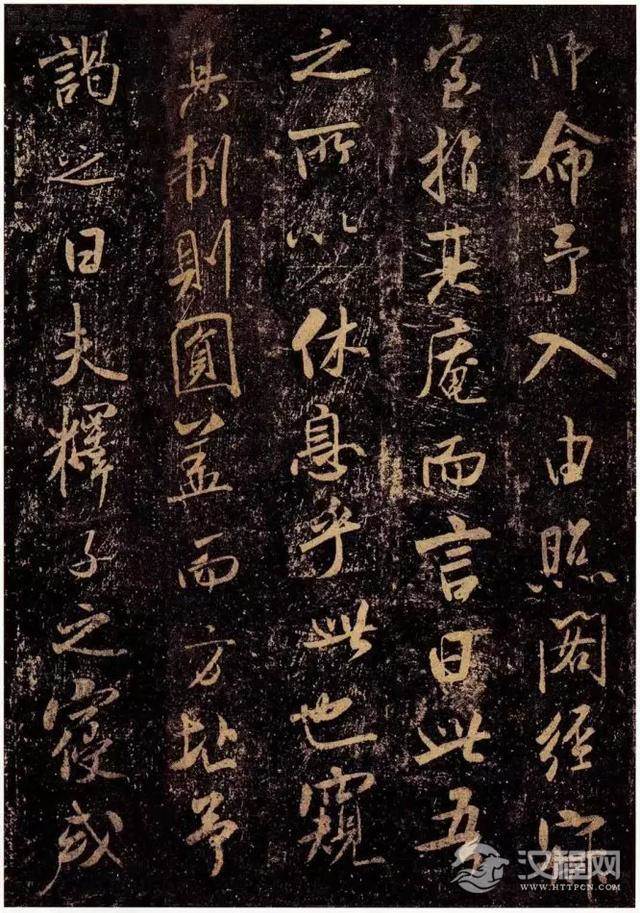 师命予入由照閣經寂
室指其庵而言曰此吾
之所以休息乎此也窺
其制則圓盖而方址予
謁之曰夫釋子之寢或
汉程网
WWW.HTTPCN.COM